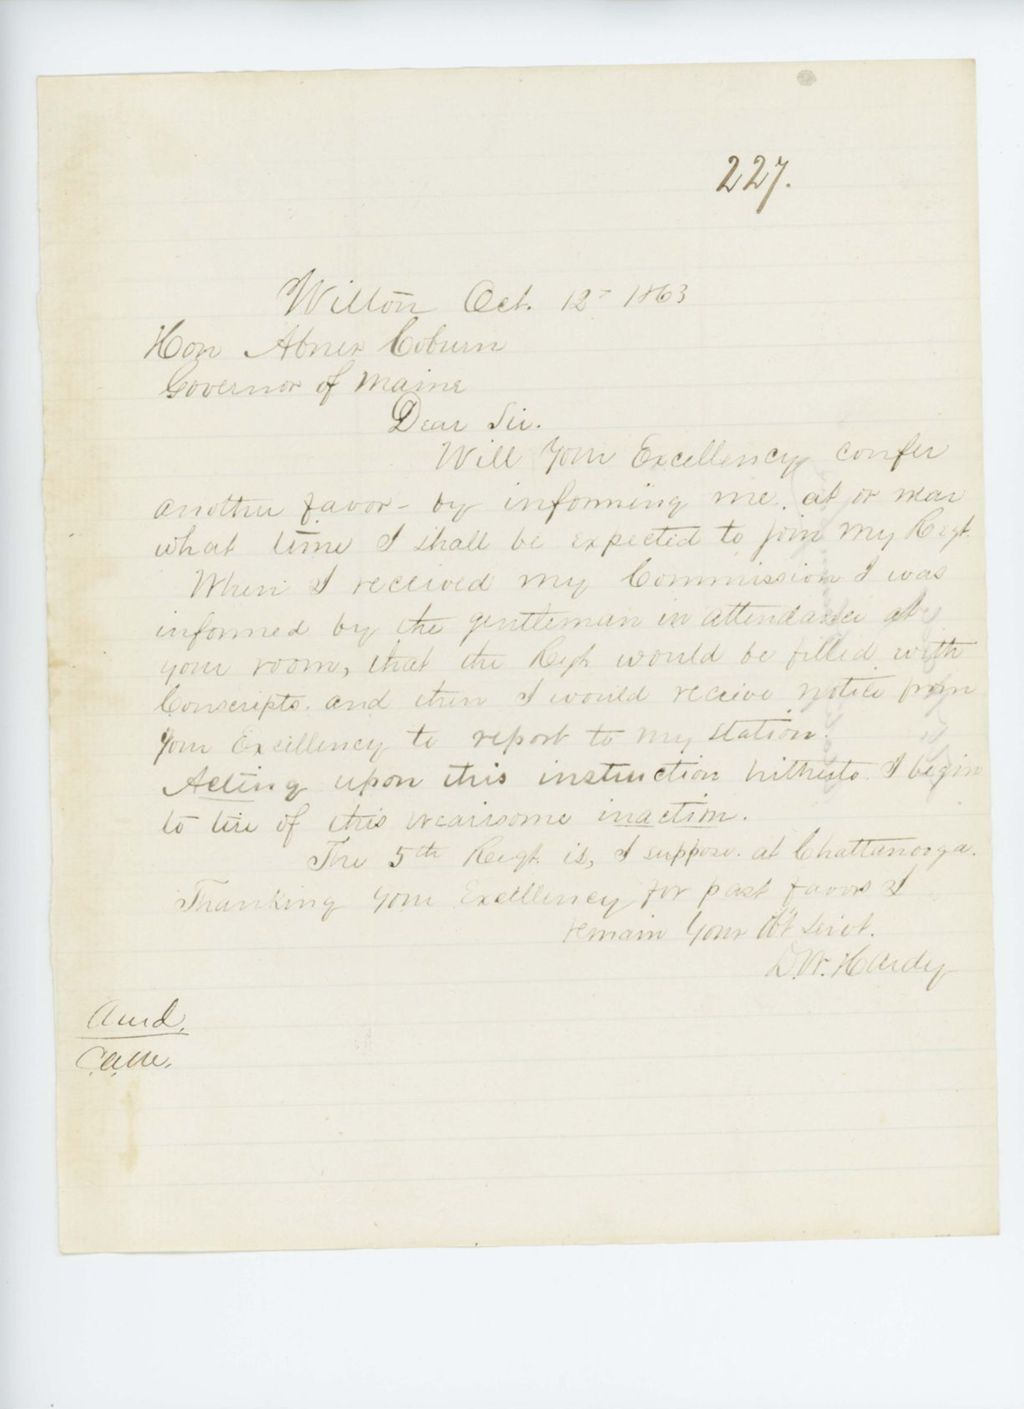 227.
Wilton Oct. 12- 1863
Hon Abner Coburn
Governor of Maine
Dear Sir.
Will Your Excellency confer
another favor - by informing me, at or near
what time I shall be expected to join my Regt.
When I received my Commission I was
informed by the gentleman in attendance at
your room, that the Regt would be filled with
Conscripts. and then I would receive notice from
Your Excellency to report to my station.
Acting upon this instruction hitherto I begin
to tire of this wearisome inaction.
The 5th Regt. is, I suppose. at Chattanooga.
Thanking your Excellency for past favors I
remain Your Obt Servt.
D.W. Hardy